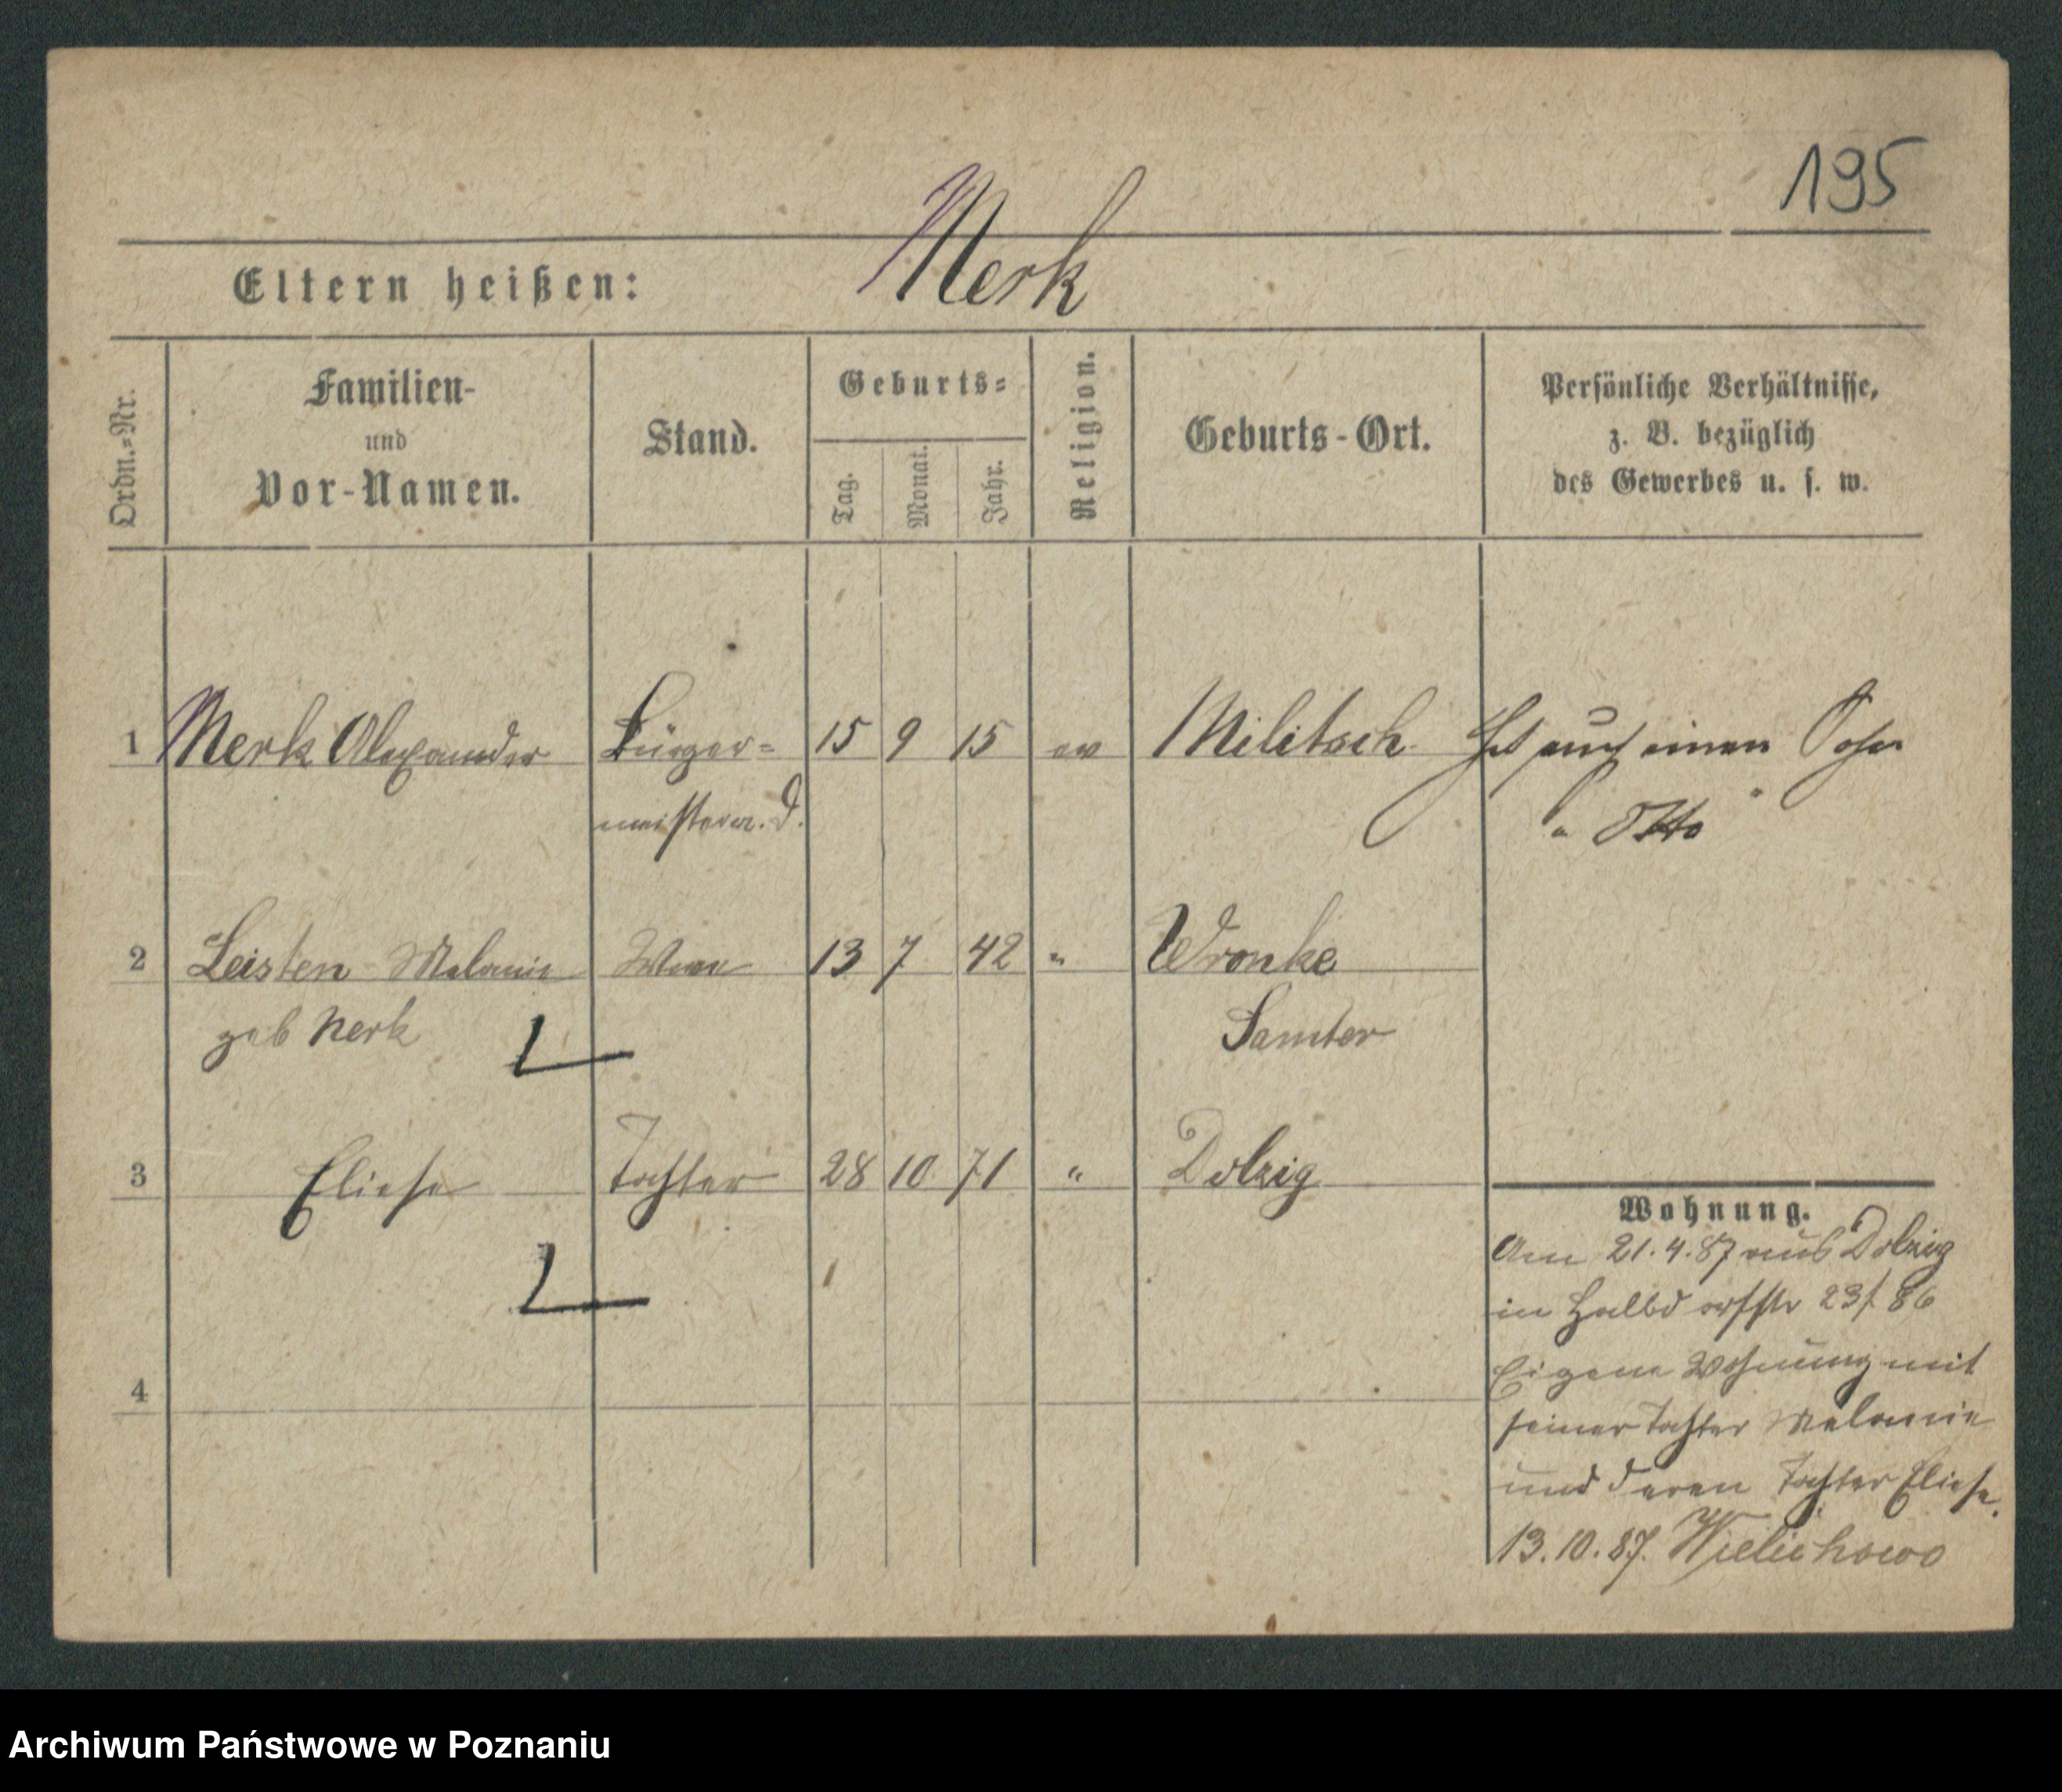 195
Merk
Eltern heißen:
Ordn.=Nr.
Familien-
und
Vor-Namen.
Stand.
Geburts=
Tag.
Monat.
Jahr.
Religion.
Geburts-Ort.
Persönliche Verhältnisse,
z. B. bezüglich
des Gewerbes u. s. w.
1 Merk Alexander Bürger= 15 9 15 ev Militsch Hat auch einen Sohn
meister a. D. „ Otto "
2 Leisten Melanie Wwe 13 7 42 " Wronke
geb Merk Samter
3 Eliese Tochter 28 10 71 " Dolzig
Wohnung.
Am 21.4.87 aus Dolzig
in Halbdorfstr 23/ 86
Eigene Wohnung mit
seiner Tochter Melanie
und deren Tochter Eliese.
4
13.10.87. Wielichowo
Archiwum Państwowe w Poznaniu